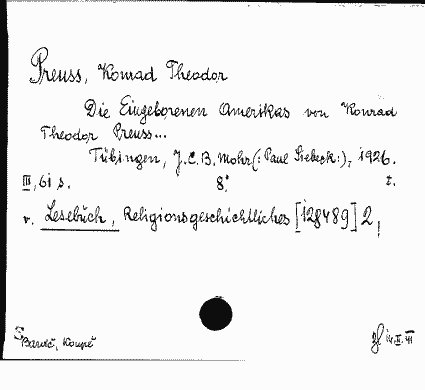 Preuss, Konrad Theodor
Die Eingeborenen Amerikas von Konrad
Theodor Preuss...
Tübingen, J.C.B. Mohr (:Paul Siebeck:), 1926.
III, 61 s. 8° t.
v. Lesebuch, Religionsgeschichtliches [128489] 2,